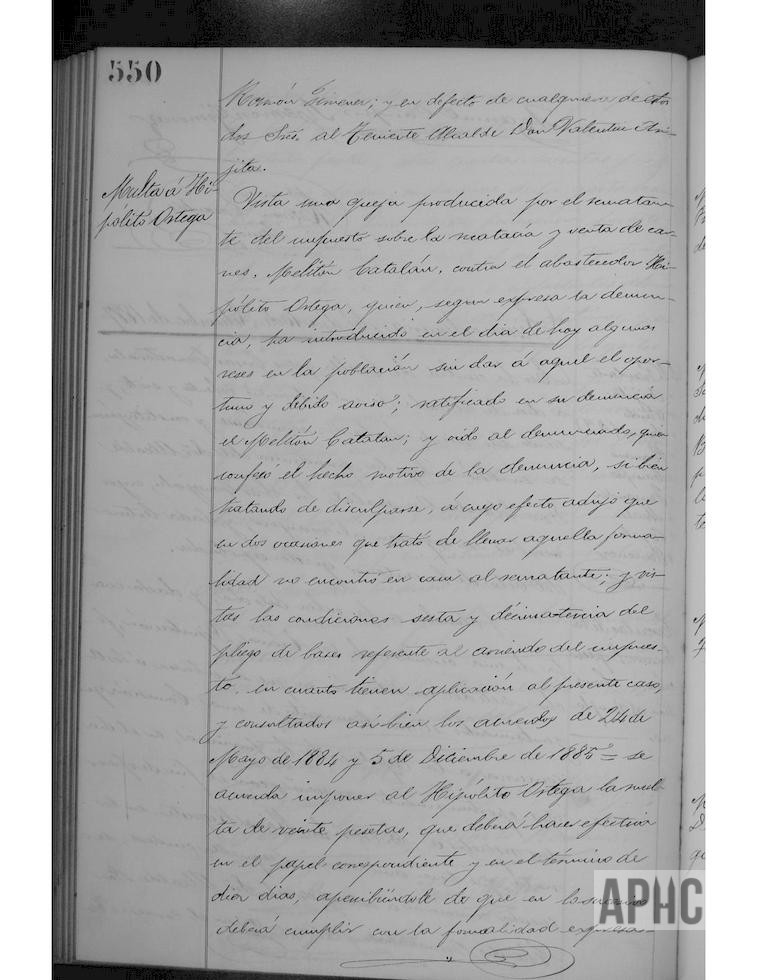 550
Ramón Gimenez; y en defecto de cualquiera de estos
dos Sres. al Teniente Alcalde Don Valentin Ari-
jita.
Multa á Hi-
pólito Ortega
Vista una queja producida por el rematan-
te del impuesto sobre la matacía y venta de car-
nes, Melitón Catalán, contra el abastecedor Hi-
pólito Ortega, quien, segun expresa la denun-
cia, ha introducido en el dia de hoy algunas
reses en la población sin dar á aquel el opor-
tuno y debido aviso; ratificado en su denuncia
el Melitón Catalan; y oido al denunciado, quien
confesó el hecho motivo de la denuncia, si bien
tratando de disculparse, á cuyo efecto adujo que
en dos ocasiones que trató de llenar aquella forma-
lidad no encontró en casa al rematante; y vis-
tas las condiciones sesta y décima-tercia del
pliego de bases referente al arriendo del impues-
to, en cuanto tienen aplicación al presente caso,
y consultados asi bien los acuerdos de 24 de
Mayo de 1884 y 5 de Diciembre de 1885 = se
acuerda imponer al Hipólito Ortega la mul-
ta de veinte pesetas, que deberá hacer efectiva
en el papel correspondiente y en el término de
diez dias, apercibiéndole de que en lo sucesivo
deberá cumplir con la formalidad expresa-
APHC